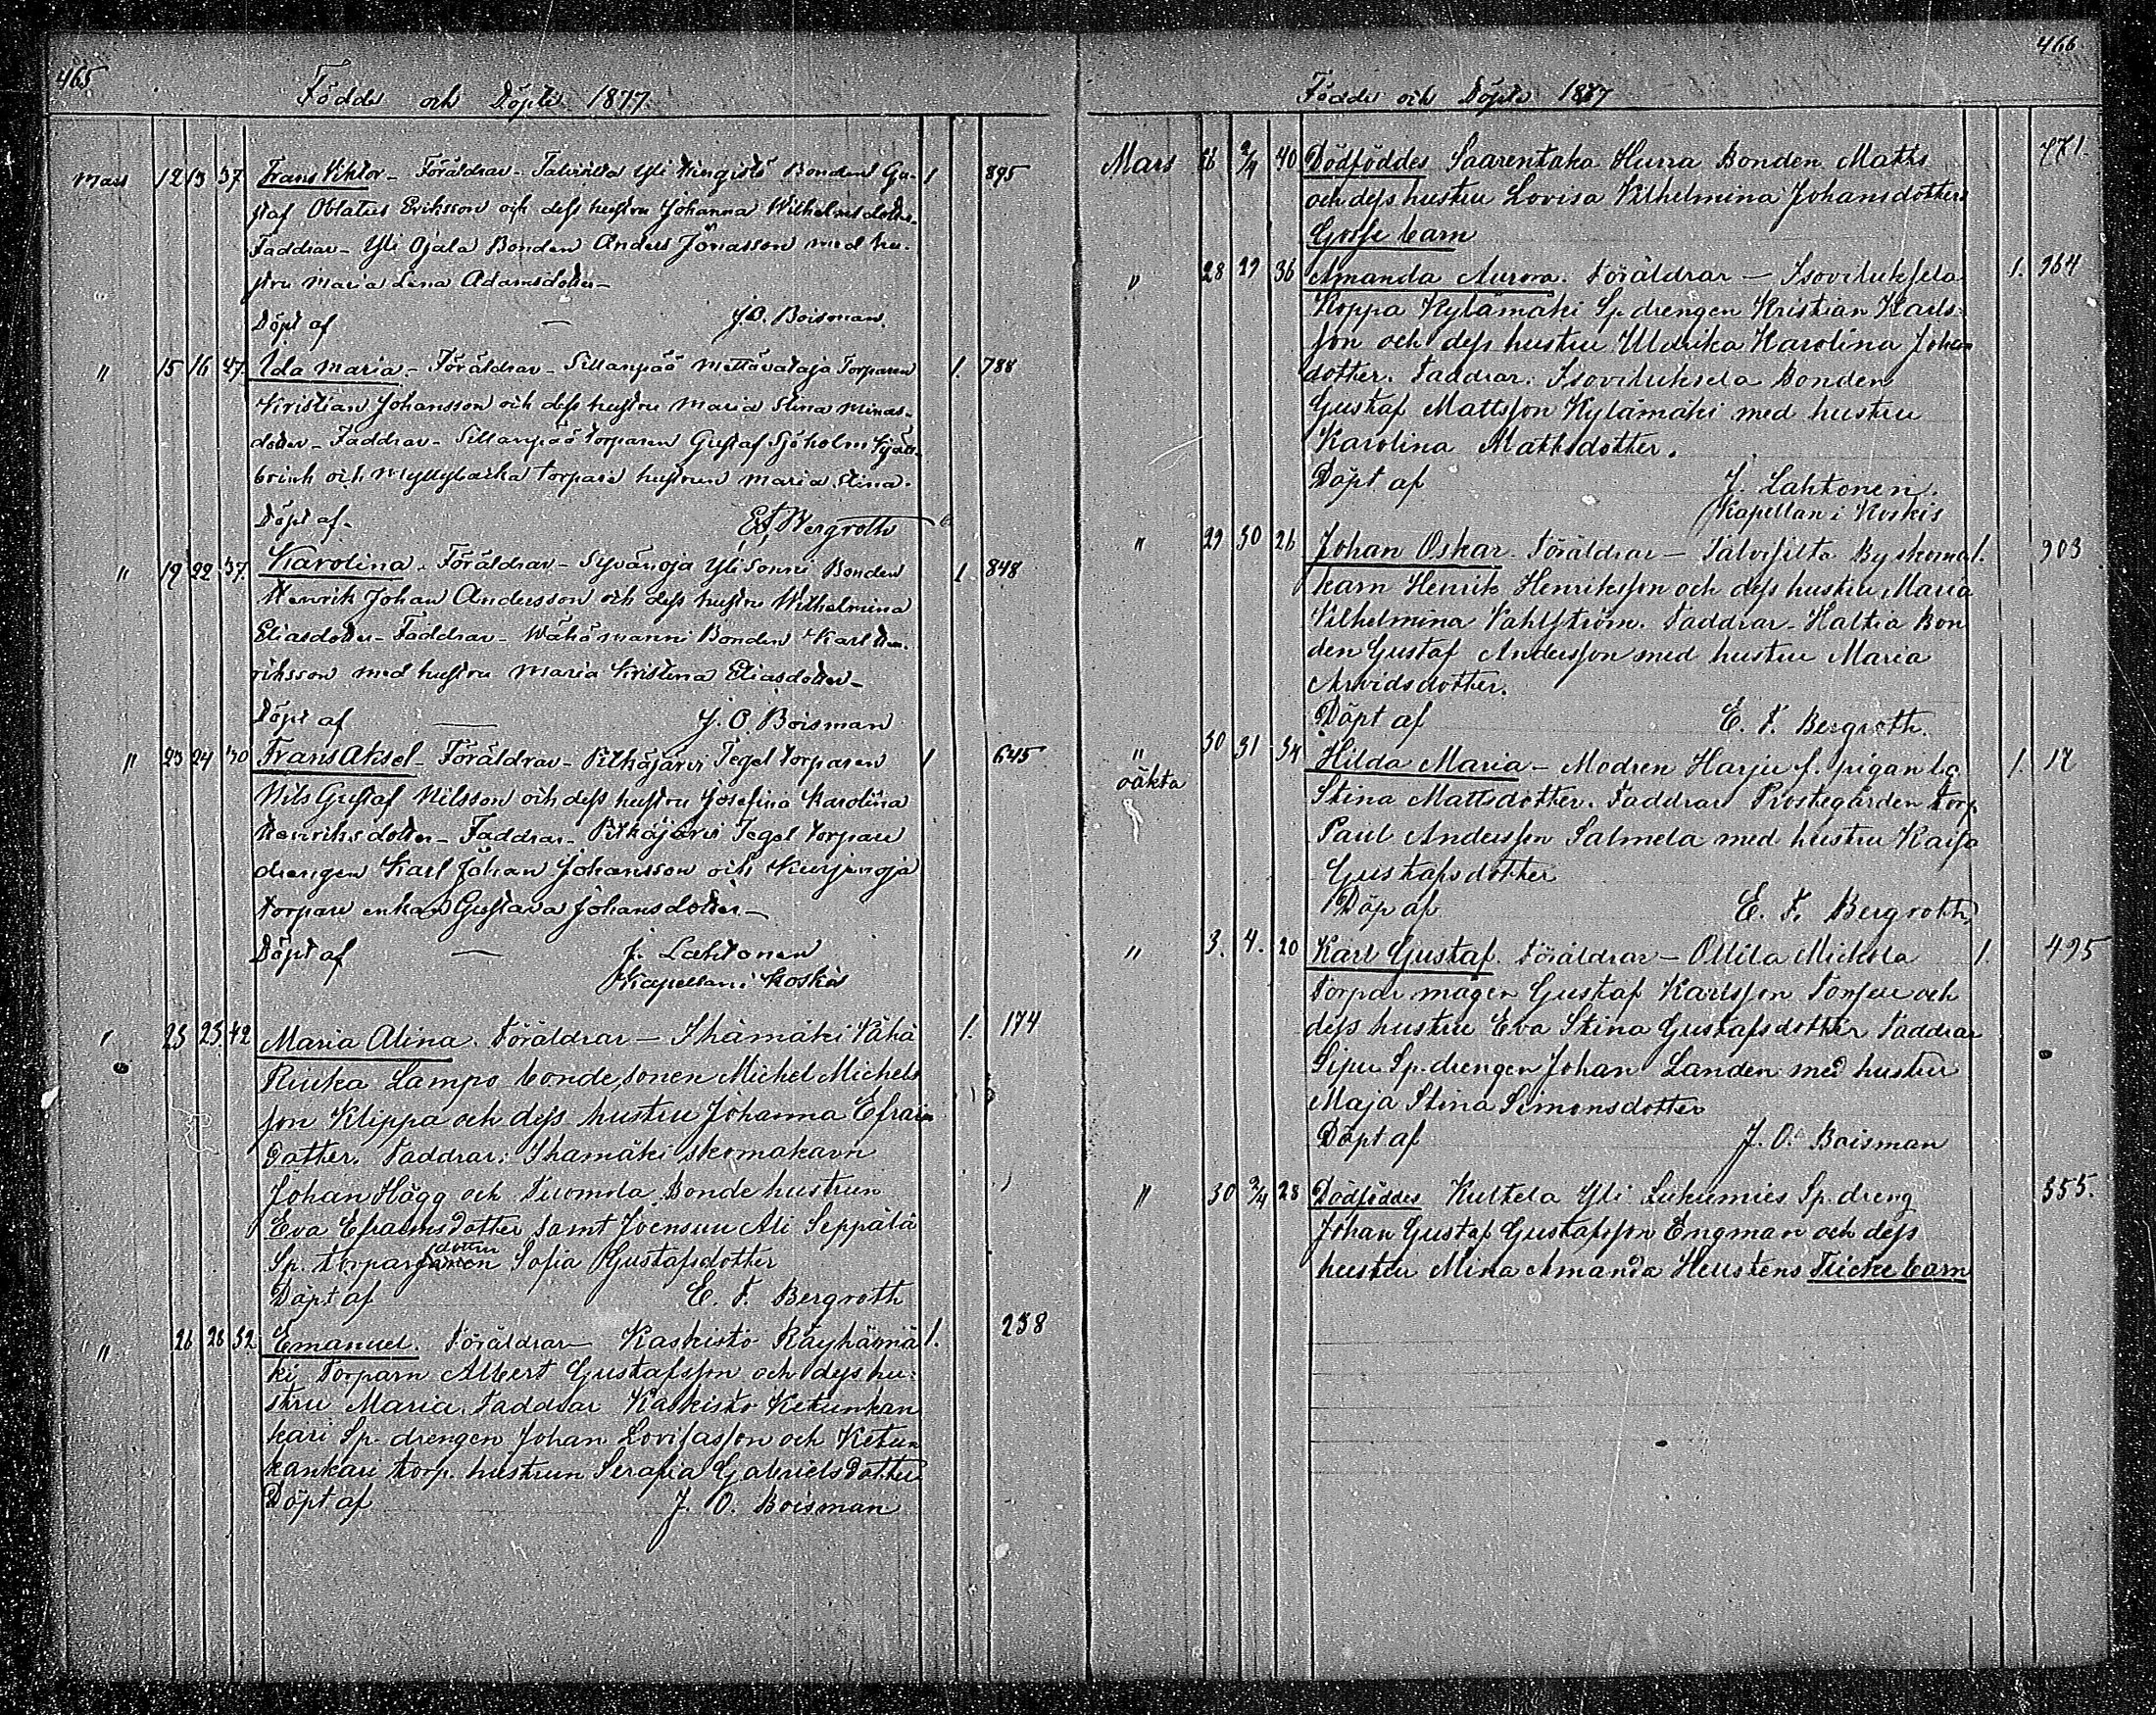 465
Födde och Döpte 1877.
Mars 12 13 37 Frans Viktor - Föräldrar - Talvisilta Yli Kingistö Bonden Gu- 1 895
staf Oblatus Eriksson och dess hustru Johanna Wilhelmsdotter.
Faddrar - Yli Ojala Bonden Anders Jönasson med hu-
stru Maria Lena Adamsdotter -
Döpt af — J. O. Boisman.
" 15 16 27 Ida Maria - Föräldrar - Sillanpää Mettävataja Torparen 1. 788
Kristian Johansson och dess hustru Maria Stina Minas-
dotter - Faddrar - Sillanpää torparen Gustaf Sjöholm
och Myllylaska torpare hustrun Maria Stina.
Döpt af - E. F. Bergroth
" 19 22 37. Karolina - Föräldrar - Syvänoja Yli Sonni Bonden 1 848
Henrik Johan Andersson och dess hustru Wilhelmina
Eliasdotter - Faddrar - Wähämanni Bonden Karl Hen-
riksson med hustru Maria Kristina Eliasdotter -
Döpt af — J. O. Boisman
" 23 24 30 Frans Aksel - Föräldrar - Pitkäjärvi Tegel torparen 1 645
Nils Gustaf Nilsson och dess hustru Josefina Karolina
Henriksdotter - Faddrar - Pitkäjärvi Tegel torpare
drengen Karl Johan Johansson och Kurjenoja
torpare enkan Gustava Johansdotter -
Döpt af — J. Lahtonen
Kapellan i Koskis
" 25 25. 42 Maria Alina. Föräldrar - Ihämäki Vähä 1. 174
Riuka Lampo bondesonen Michel Michels
son Klippa och dess hustru Johanna Efraim
Dotter. Faddrar: Ihamäki skomakarn
Johan Hägg och Tuomola Bonde hustrun
Eva Efraims Dotter samt Joensuu Ali Seppälä
dottren
Sp. torpar Sofia Gustafsdotter
Döpt af E. F. Bergroth
" 26 28 32 Emanuel. Föräldrar - Kaskisto Räyhämä 1. 258
ki Torparn Albert Gustafsson och dess hu-
stru Maria. Faddrar Kaskistö Ketunkan
kari Sp. drengen Johan Lovisasson och Ketun
kankari torp. hustrun Serafia Gabriels Dotter
Döpt af J. O. Boisman
466
Födde och Döpte 1877
Mars 26 2/4 40 Dödföddes Saarentaka Hurra Bonden Matts 771.
och dess hustru Lovisa Vilhelmina Johansdotters
Gosse barn
" 28 29 36 Amanda Aurora. Föräldrar - Isoviluksela 1. 964
Koppa Kylämäki Sp. drengen Kristian Karls-
son och dess hustru Ulrika Karolina Johans
dotter. Faddrar: Isoviluksela Bonden
Gustaf Mattsson Kylämäki med hustru
Karolina Mattsdotter.
Döpt af J. Lahtonen.
Kapellan i Koskis
" 29 30 26 Johan Oskar. Föräldrar - Talvisilta By skoma 1. 903
karn Henrik Henriksson och dess hustru Maria
Vilhelmina Vahlström. Faddrar - Haltia Bon
den Gustaf Andersson med hustru Maria
Arvidsdotter.
Döpt af E. F. Bergroth.
" 30 31 34 Hilda Maria - Modren Harju f. pigan 1. 12
oäkta
Stina Mattsdotter. Faddrar Prostegården torp.
Paul Andersson Salmela med hustru Kaisa
Gustafsdotter
Döp af E. F. Bergroth,
" 3. 4. 20 Karl Gustaf. Föräldrar - Ollila Mickola 1. 495
Torpar mågen Gustaf Karlsson och
dess hustru Eva Stina Gustafsdotter Faddrar
Sipu Sp. drengen Johan Landen med hustru
Maja Stina Simonsdotter
Döpt af J. O. Boisman
" 30 2/4 28 Dödföddes Kultela Yli Lukumies Sp. dreng 355.
Johan Gustaf Gustafsson Engman och dess
hustru Mina Amanda Heustens Flicke barn